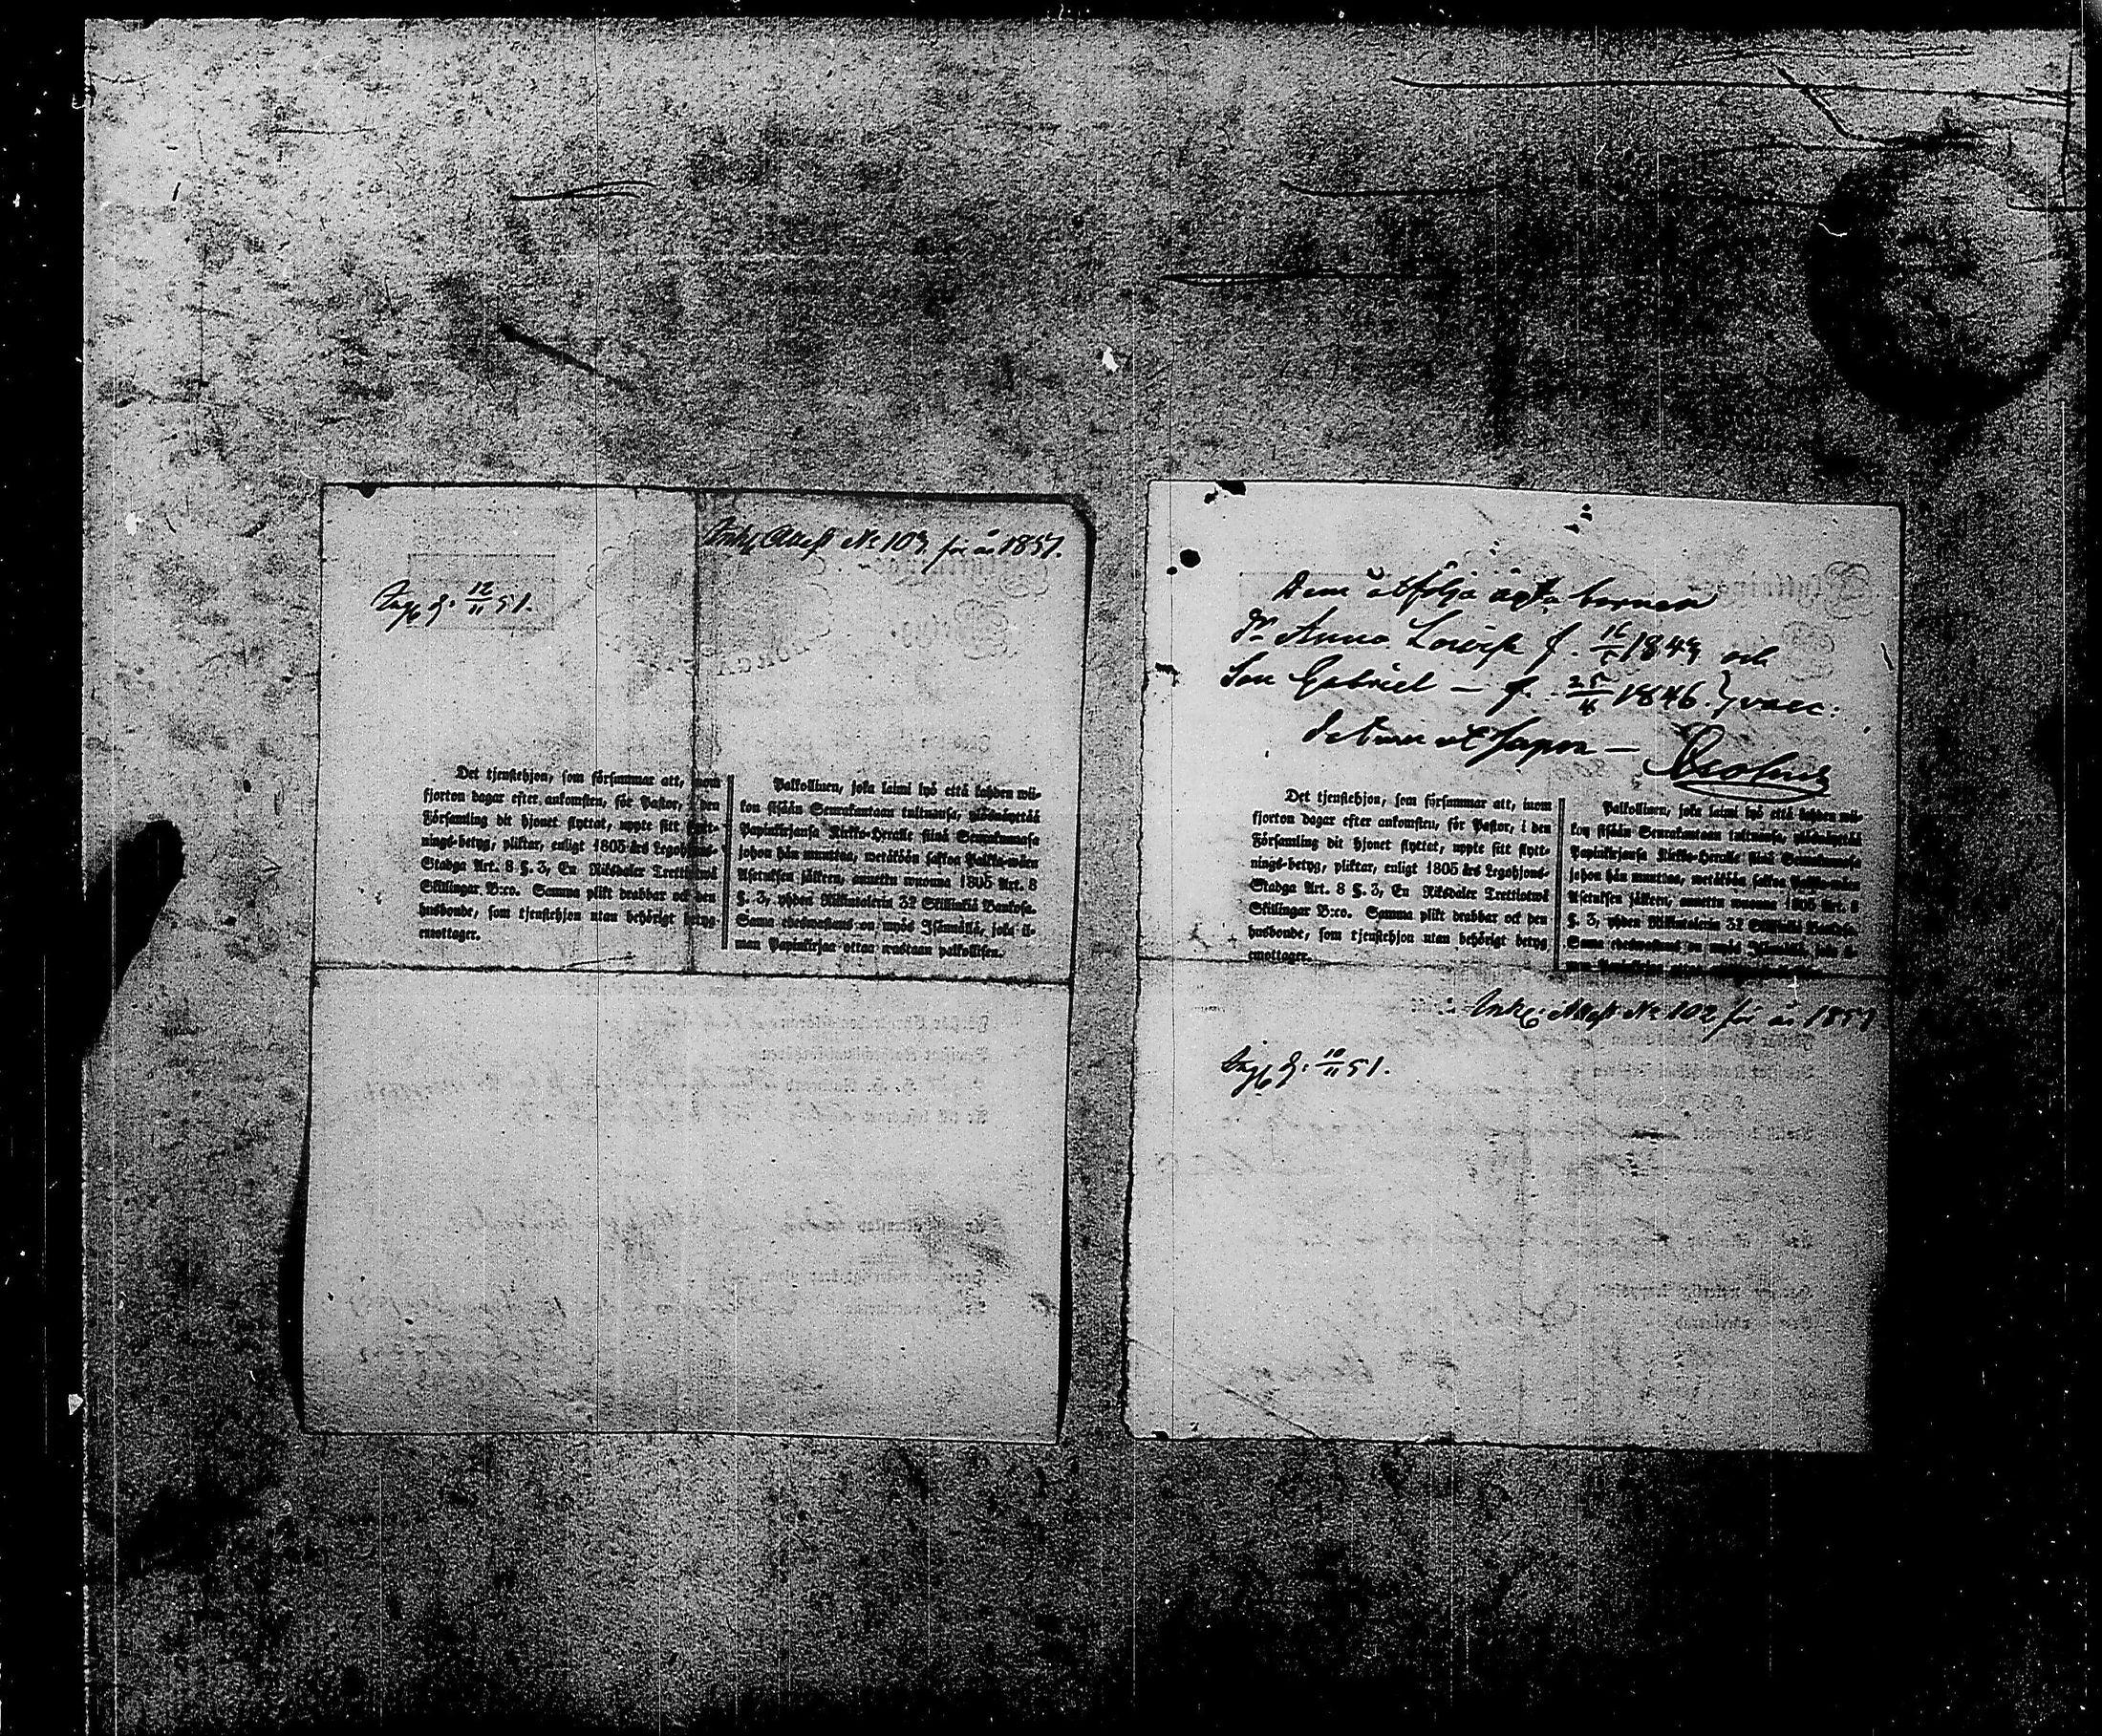 Attest № 103 för år 1851.
12/11 51.
Det tjenstehjon, som försummar att, inom
fjorton dagar efter ankomsten, för Pastor, i den
Församling dit hjonet flyttat, uppte sitt flytt-
nings-betyg, pliktar, enligt 1805 års Legohjons-
Stadga Art. 8 §. 3, En Riksdaler Trettiotwå
Skillingar B:co. Samma plikt drabbar ock den
husbonde, som tjenstehjon utan behörigt betyg
emottager.
Palkollinen, joka laimi lyö että kahden wii-
kon sisään Seurakuntaan tultuansa, ylösnäyttää
Papinkirjansa Kirkko-Herralle siinä Seurakunnasa
johon hän muuttaa, wetäköön sakkoa Palkka-wäen
Asetuksen jälkeen, annettu wuonna 1805 Art. 8
§. 3, yhden Riksitalerin 32 Skillinkiä Bankosa.
Sama edeswastaus on myös Isännällä, joka il-
man Papinkirjaa ottaa wastaan palkollisen.
Dem åtfölja äkta barnen
Dr Anna Lovisa f. 1843 och
Son Gabriel — f. 25 1846. } vacc:
Det tjenstehjon, som försummar att, inom
fjorton dagar efter ankomsten, för Pastor, i den
Församling dit hjonet flyttat, uppte sitt flytt-
nings-betyg, pliktar, enligt 1805 års Legohjons-
Stadga Art. 8 §. 3, En Riksdaler Trettiotwå
Skillingar B:co. Samma plikt drabbar ock den
husbonde, som tjenstehjon utan behörigt betyg
emottager.
Palkollinen, joka laimi lyö että kahden wii-
kon sisään Seurakuntaan tultuansa, ylösnäyttää
Papinkirjansa Kirkko-Herralle siinä Seurakunnasa
johon hän muuttaa, wetäköön sakkoa Palkka-wäen
Asetuksen jälkeen, annettu wuonna 1805 Art. 8
§. 3, yhden Riksitalerin 32 Skillinkiä Bankosa.
Sama edeswastaus on myös Isännällä, joka il-
man Papinkirjaa ottaa
Attest № 102 för år 1851
10/11 51.